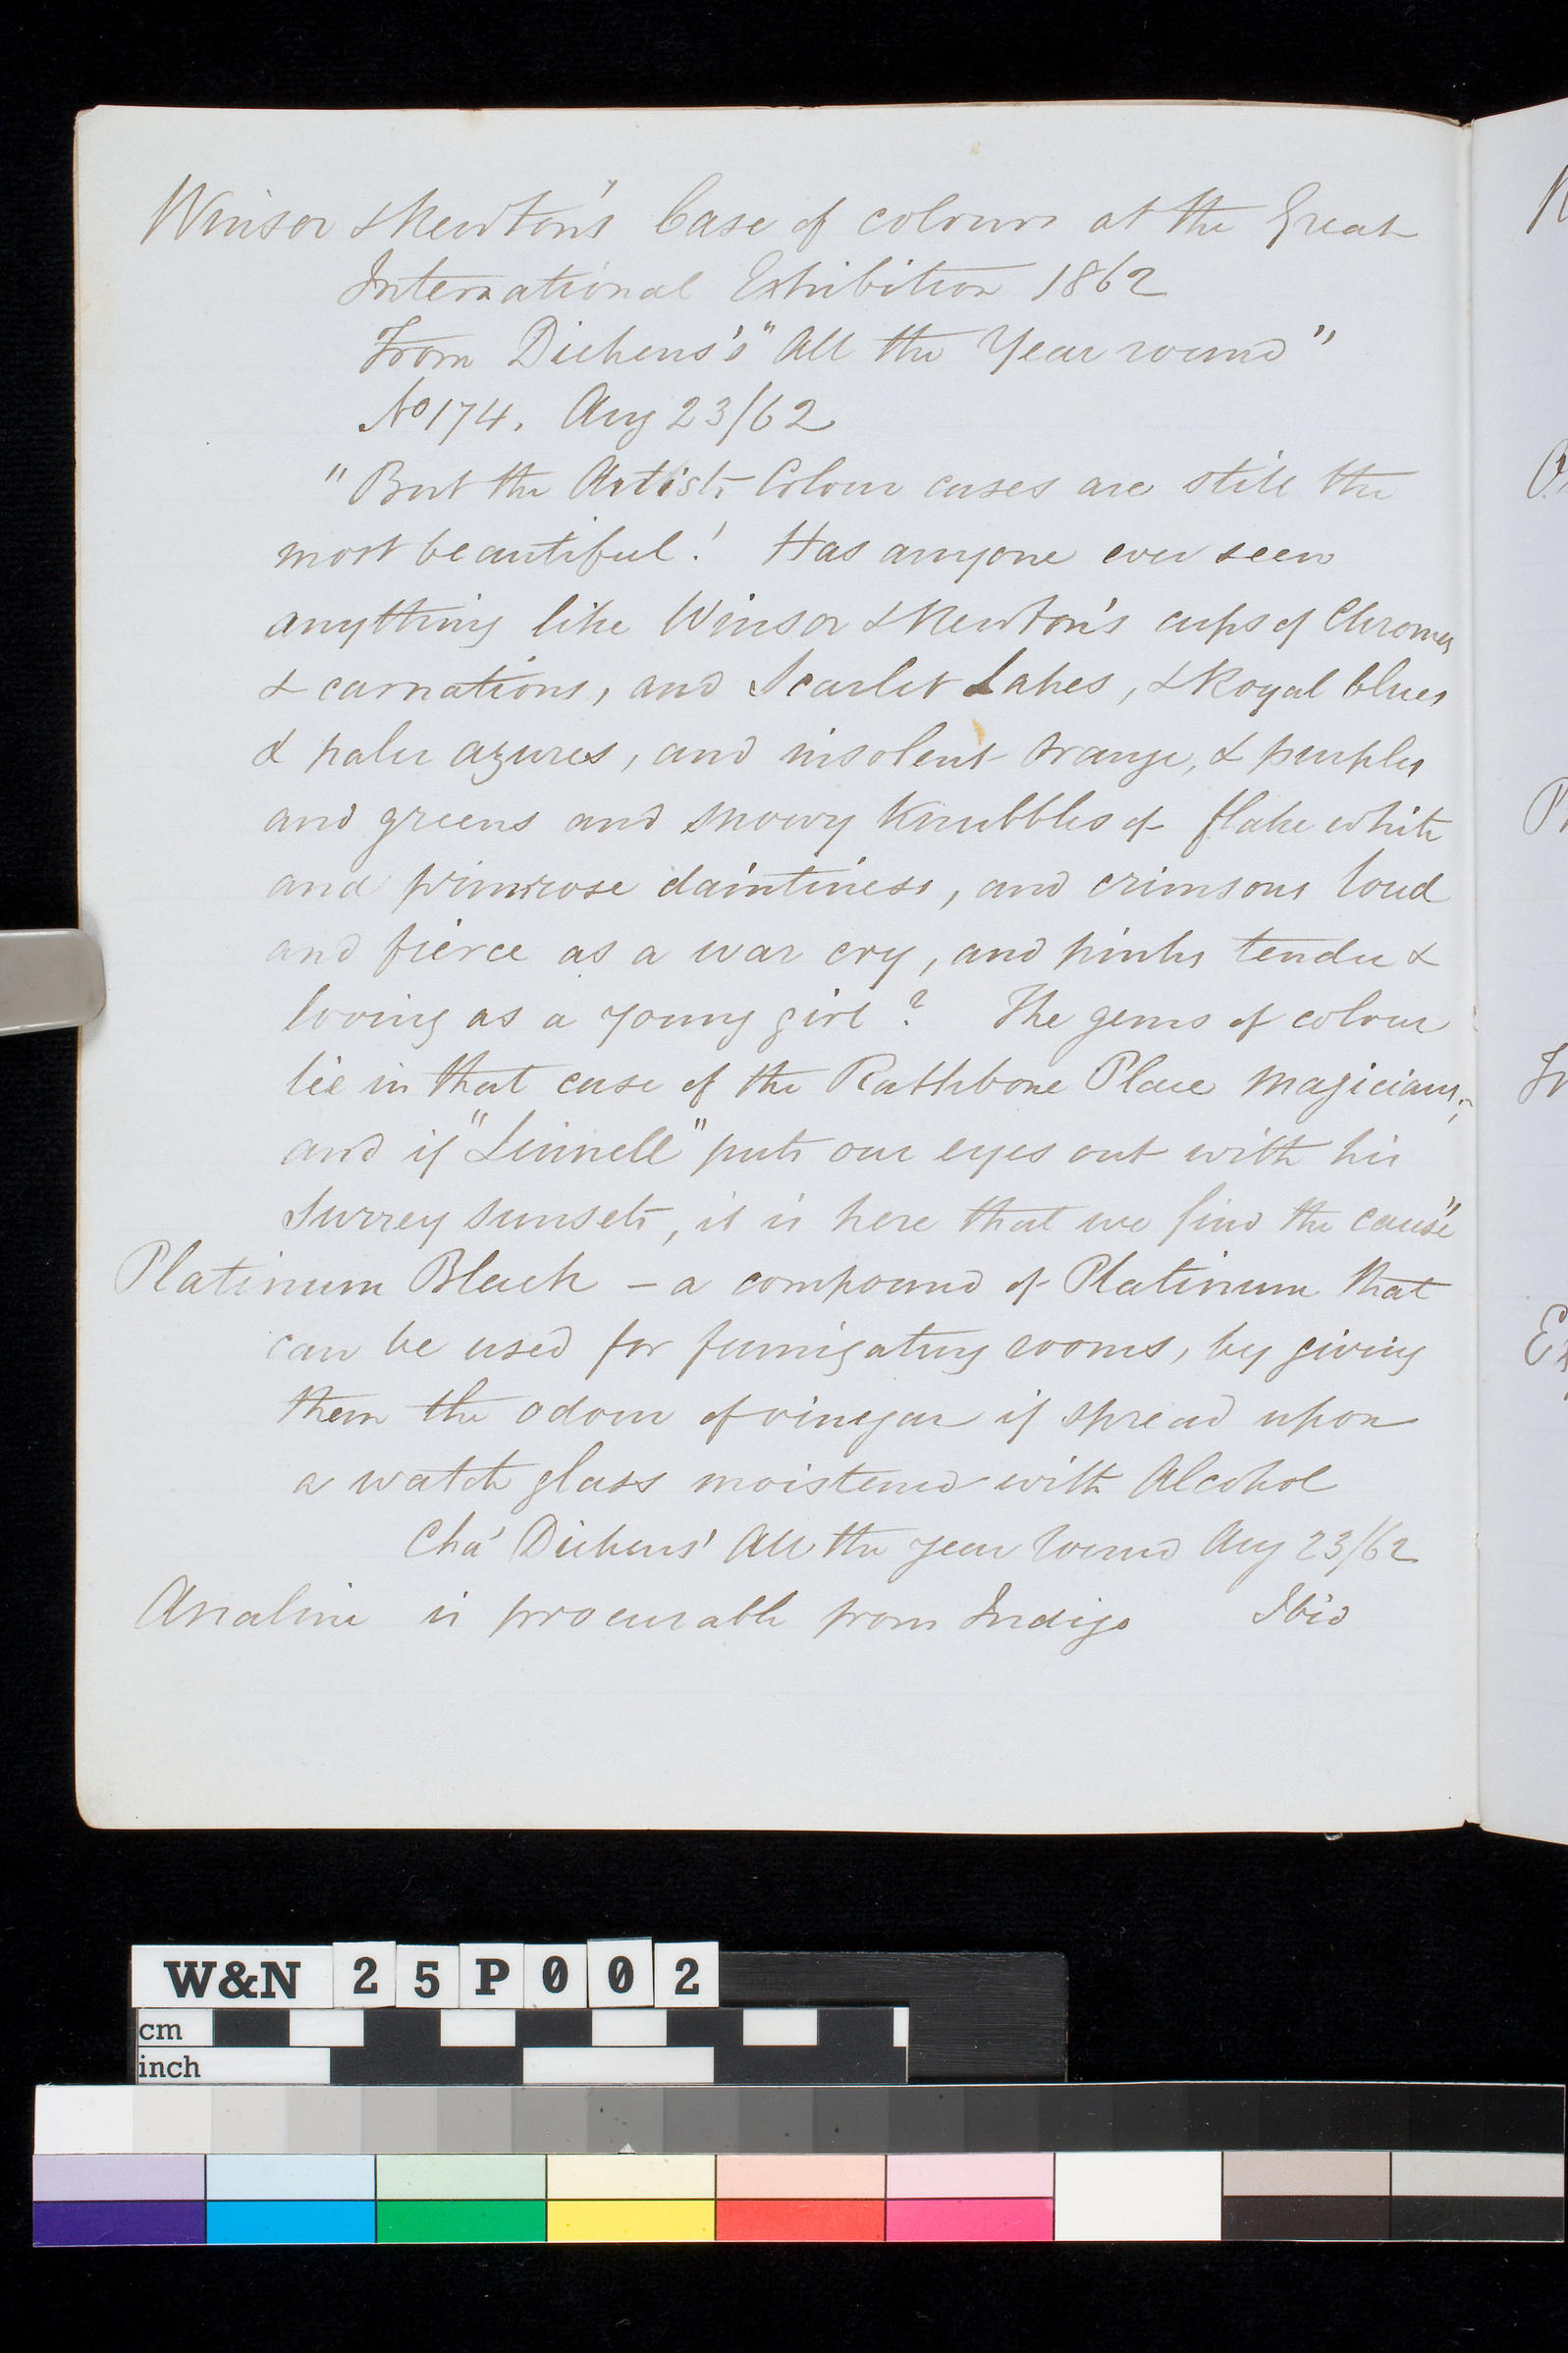 Winsor & Newton's Case of colours at the Great
International Exhibition 1862
From Dickens's "All the Year round"
No 174. Aug 23/62
"But the Artists Colour cases are still the
most beautiful! Has anyone ever seen
anything like Winsor & Newton's cups of Chromes
& carnations, and Scarlet Lakes, & Royal blues
& paler azures, and insolent orange, & purples
and greens and snowy Knubbles of flake white
and primrose daintiness, and crimsons loud
and fierce as a war cry, and pinks tender &
loving as a young girl? The gems of colour
lie in that case of the Rathbone Place Magicians;
and if "Linnell" puts our eyes out with his
Surrey sunsets, it is here that we find the cause"
Platinum Black – a compound of Platinum that
can be used for fumigating rooms, by giving
them the odour of vinegar if spread upon
a watch glass moistened with Alcohol
Chas Dickens' All the year round Aug 23/62
Analine is procurable from Indigo Ibid
W&N 25P002
cm
inch